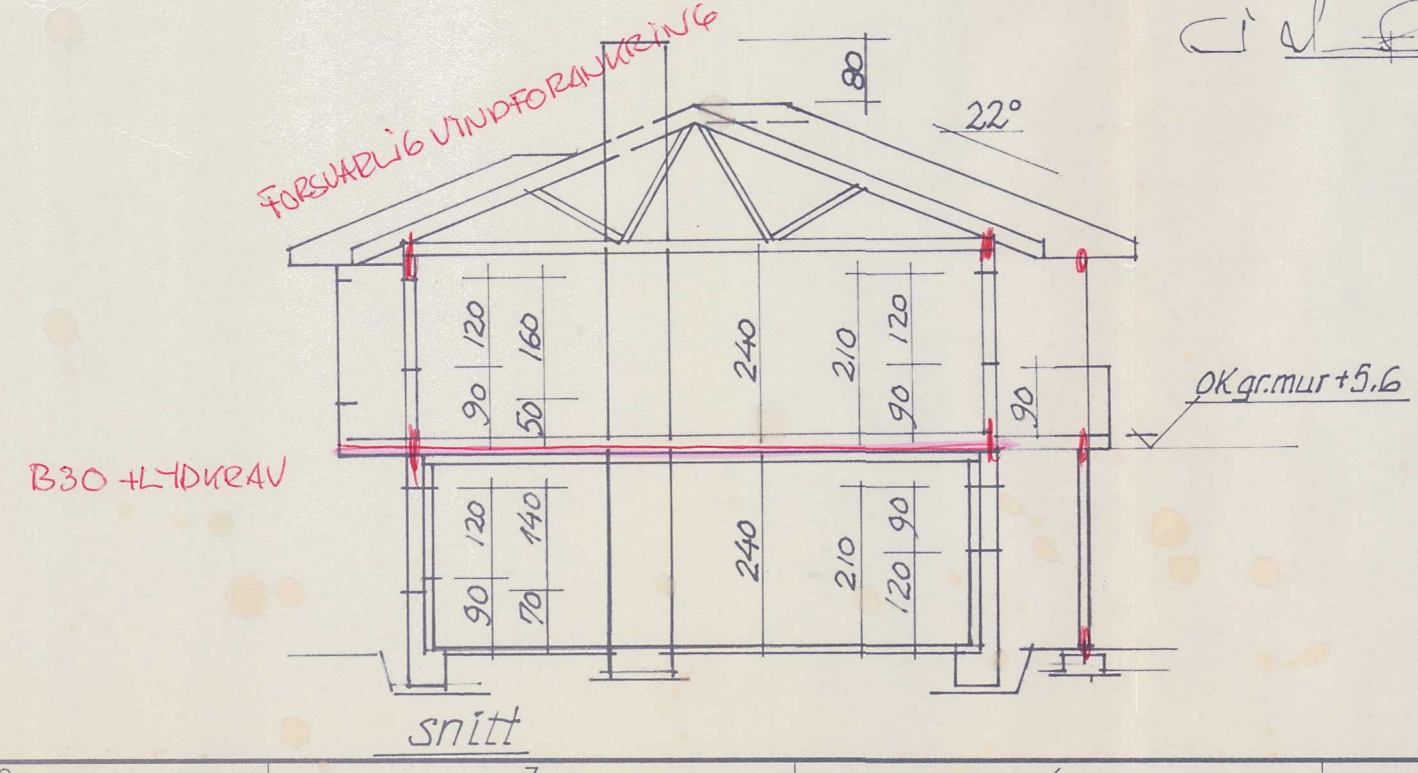 FORSVARLIG VINDFORANKRING
80
22°
120
160
240
210
120
90
50
90
90
OK gr.mur +5.6
B30 + LYDKRAV
120
140
240
210
90
90
70
120
snitt
7